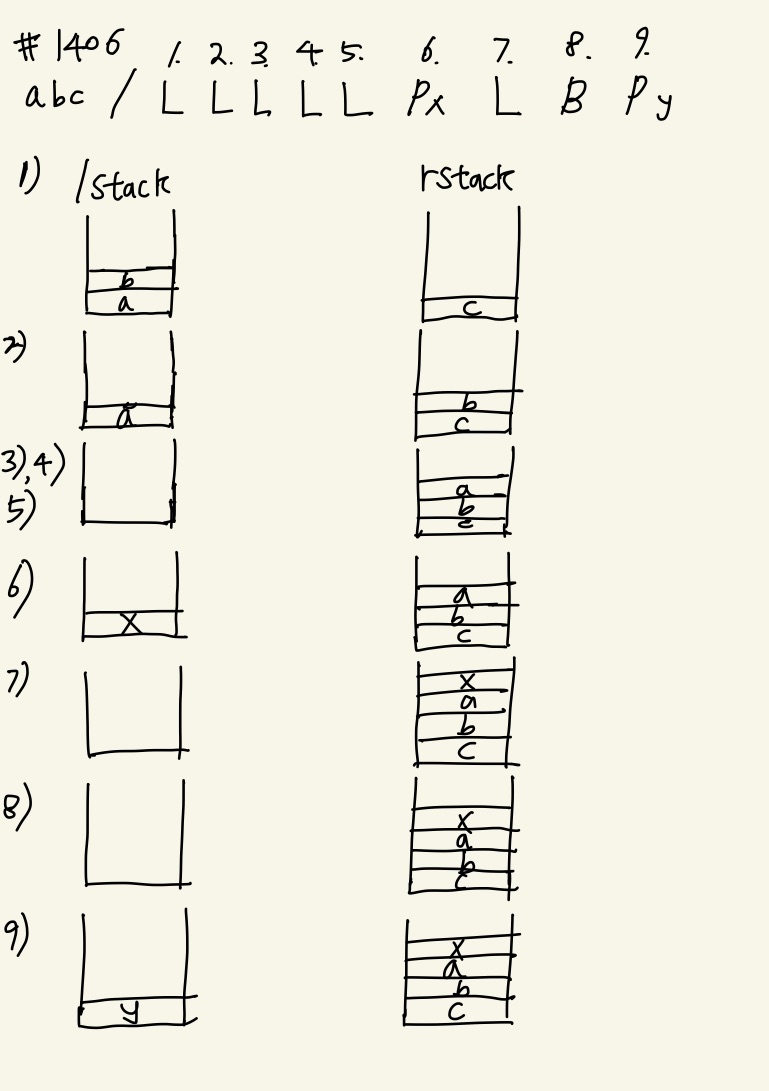 # 1406 1. 2. 3. 4. 5. 6. 7. 8. 9.
abc / L L L L L Px L B Py
1) lstack rstack
b
a c
2)
a b
c
3), 4) a
5) b
c
6) a
x b
c
7) x
a
b
c
8) x
a
b
c
9) x
a
b
y c